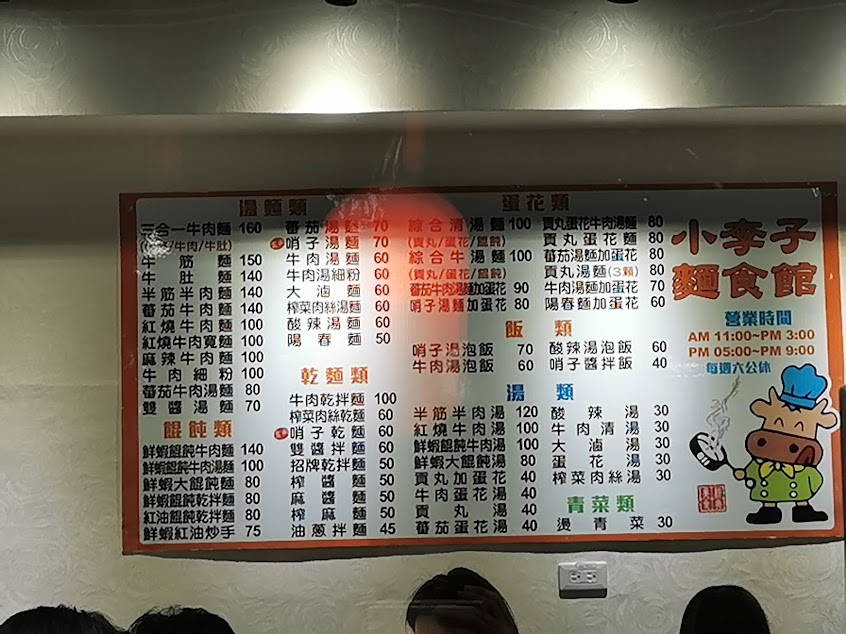 湯麵類
三合一牛肉麵 160
/牛肉/牛肚)
牛筋麵 150
牛肚麵 140
半筋半肉麵 140
蕃茄牛肉麵 140
紅燒牛肉麵 100
紅燒牛肉寬麵 100
麻辣牛肉麵 100
牛肉細粉 100
蕃茄牛肉湯麵 80
雙醬湯麵 70
餛飩類
鮮蝦餛飩牛肉麵 140
鮮蝦餛飩牛肉湯麵 100
鮮蝦大餛飩麵 80
鮮蝦餛飩乾拌麵 80
紅油餛飩乾拌麵 80
鮮蝦紅油炒手 75
蕃茄湯麵 70
哨子湯麵 70
牛肉湯麵 60
牛肉湯細粉 60
大滷麵 60
榨菜肉絲湯麵 60
酸辣湯麵 60
陽春麵 50
乾麵類
牛肉乾拌麵 100
榨菜肉絲乾麵 60
哨子乾麵 60
雙醬拌麵 60
招牌乾拌麵 50
榨醬麵 50
麻醬麵 50
榨麻麵 50
油蔥拌麵 45
蛋花類
綜合清湯麵 100
(貢丸/蛋花/餛飩)
綜合牛湯麵 100
(貢丸/蛋花/餛飩)
蕃茄牛肉湯麵加蛋花 90
哨子湯麵加蛋花 80
貢丸蛋花牛肉湯麵 80
貢丸蛋花麵 80
蕃茄湯麵加蛋花 80
貢丸湯麵(3顆) 80
牛肉湯麵加蛋花 70
陽春麵加蛋花 60
飯類
哨子湯泡飯 70
牛肉湯泡飯 60
酸辣湯泡飯 60
哨子醬拌飯 40
湯類
半筋半肉湯 120
紅燒牛肉湯 100
鮮蝦餛飩牛肉湯 100
鮮蝦大餛飩湯 80
貢丸加蛋花 40
牛肉蛋花湯 40
貢丸湯 40
蕃茄蛋花湯 40
酸辣湯 30
牛肉清湯 30
大滷湯 30
蛋花湯 30
榨菜肉絲湯 30
青菜類
燙青菜 30
小李子
麵食館
營業時間
AM 11:00~PM 3:00
PM 05:00~PM 9:00
每週六公休